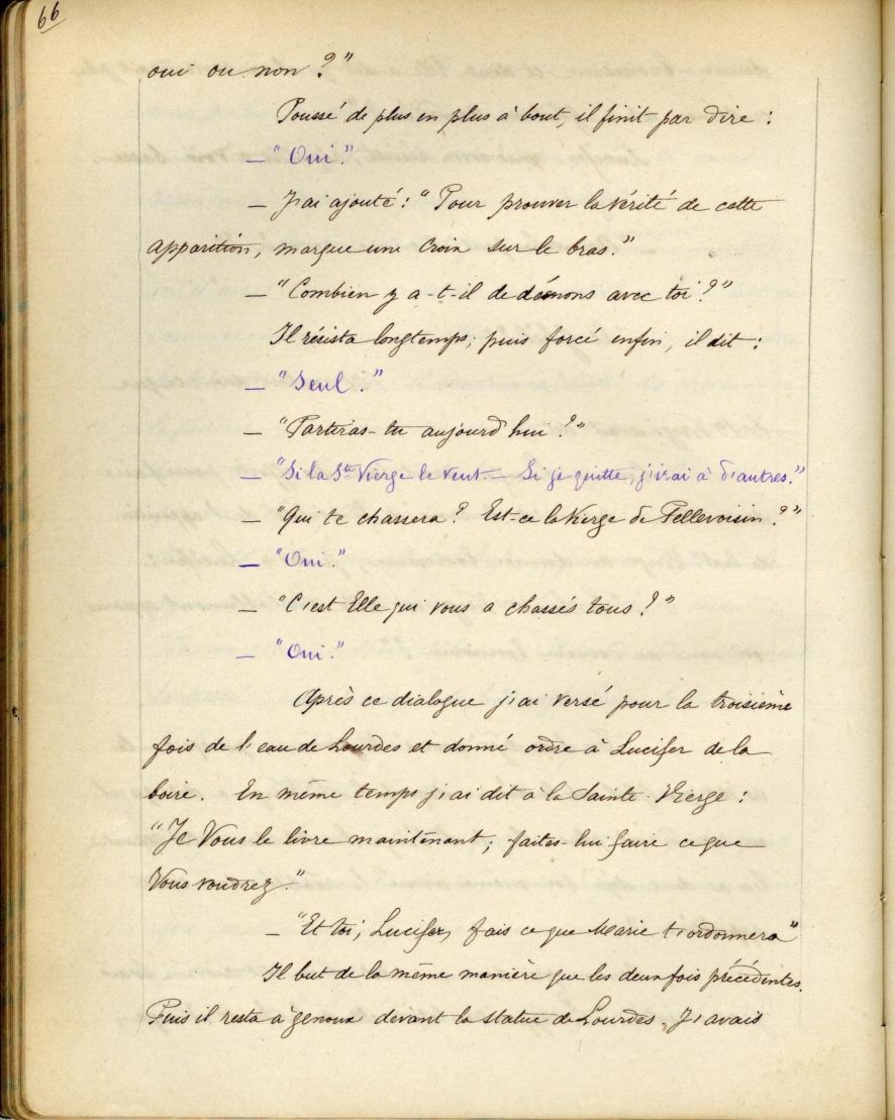 66
oui ou non ?"
Poussé de plus en plus à bout, il finit par dire :
— "Oui."
— J'ai ajouté : "Pour prouver la vérité de cette
apparition, marque une Croix sur le bras."
— "Combien y a-t-il de démons avec toi ?"
Il résista longtemps ; puis forcé enfin, il dit :
— "Seul."
— "Partiras-tu aujourd'hui ?"
— "Si la Ste Vierge le veut — Si je quitte, j'irai à d'autres."
— "Qui te chassera ? Est-ce la Vierge de Pellevoisin ?"
— "Oui."
— "C'est Elle qui vous a chassés tous ?"
— "Oui."
Après ce dialogue j'ai versé pour la troisième
fois de l'eau de Lourdes et donné ordre à Lucifer de la
boire. En même temps j'ai dit à la Sainte-Vierge :
"Je Vous le livre maintenant ; faites-lui faire ce que
Vous voudrez."
— "Et toi, Lucifer, fais ce que Marie t'ordonnera"
Il but de la même manière que les deux fois précédentes.
Puis il resta à genoux devant la statue de Lourdes. J'avais